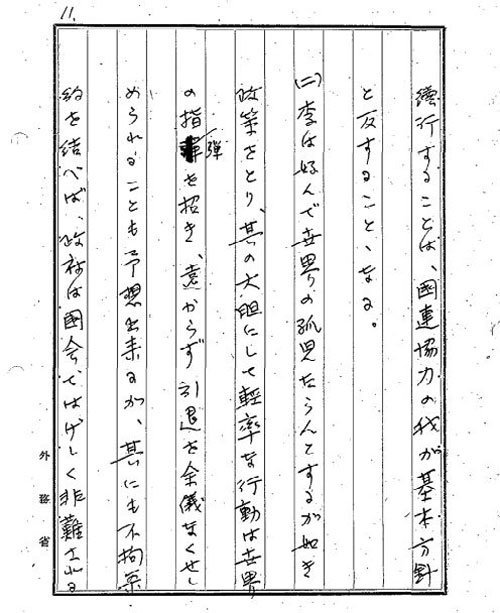 11.
續行することは、國連協力の我が基本方針
と反すること、なる。
(二)李は好んで世界の孤児たらんとするが如き
政策をとり、其の大胆にして軽率な行動は世界
の指弾を招き、遠からず引退を余儀なくせし
められることも予想出来るが、其にも不拘条
約を結べば、政府は國会ではげしく非難される
外務省